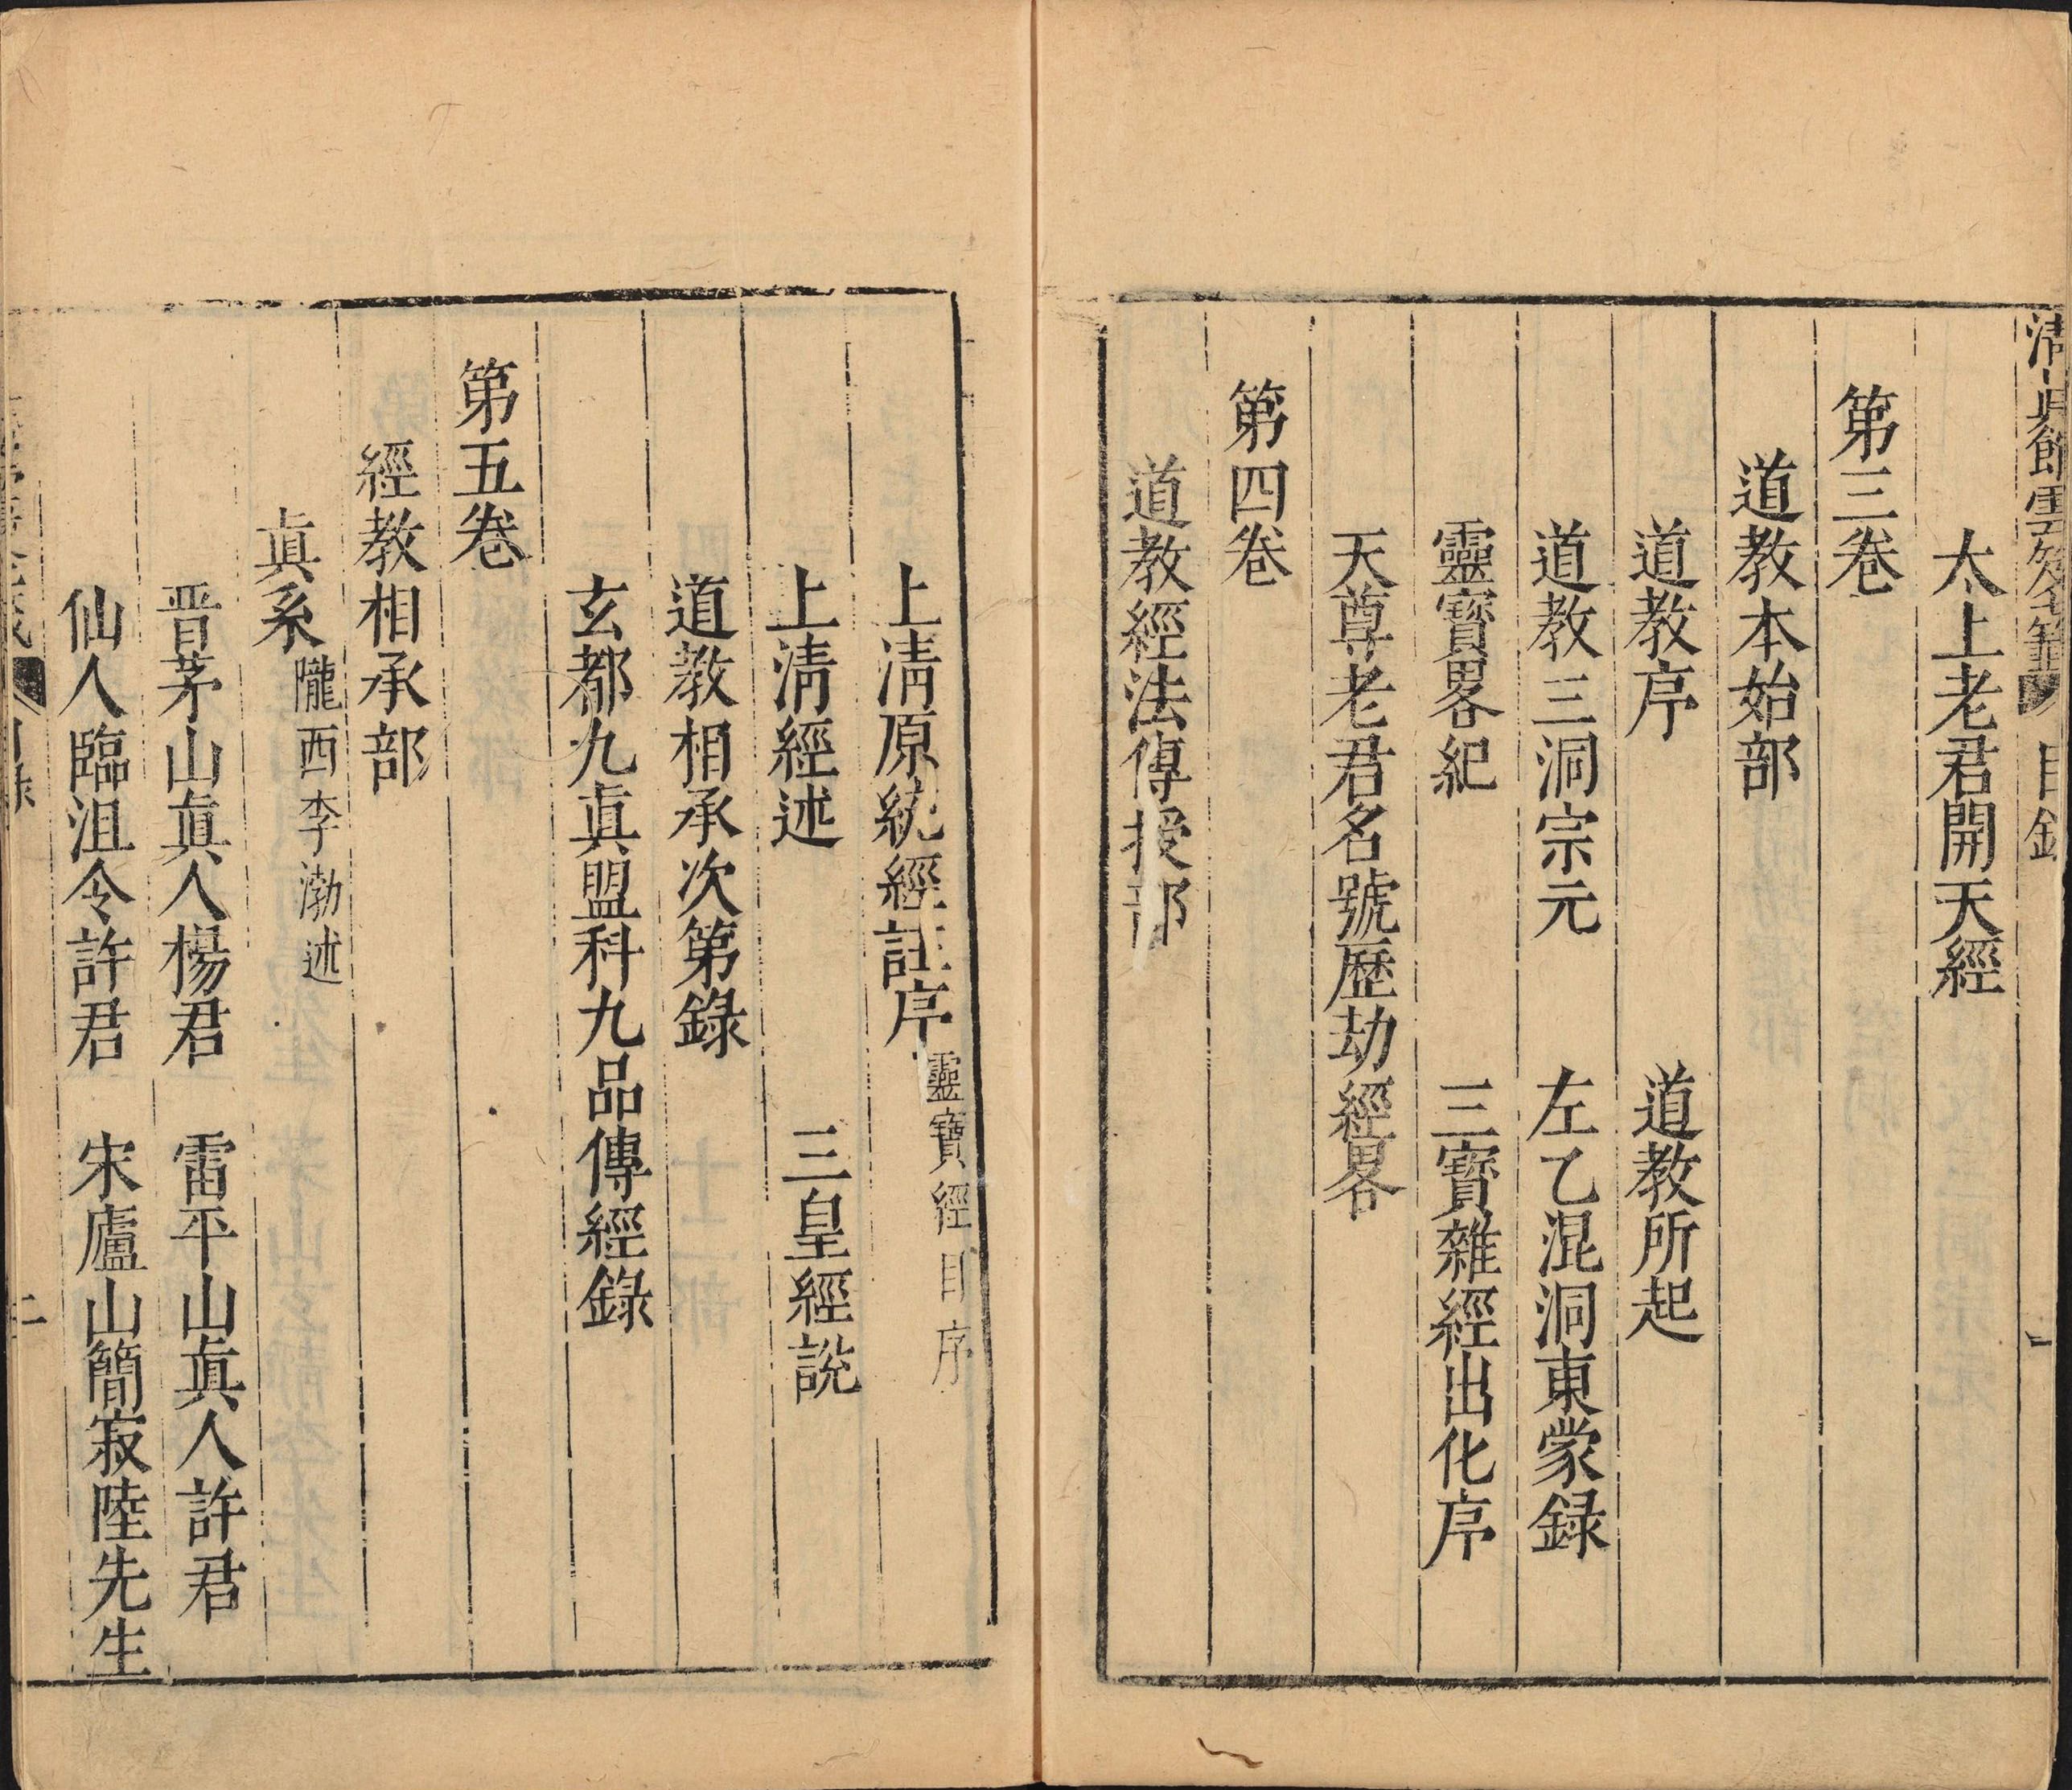 目錄
一
太上老君開天經
第三卷
道教本始部
道教序　道教所起
道教三洞宗元　左乙混洞東蒙録
靈寶畧紀　三寶雜經出化序
天尊老君名號歷劫經畧
第四卷
道教經法傳授部
上清原統經註序　靈寶經目序
上清經述　三皇經説
道教相承次第錄
玄都九眞盟科九品傳經錄
第五卷
經教相承部
眞系　隴西李渤述
晋茅山眞人楊君　雷平山眞人許君
仙人臨沮令許君　宋廬山簡寂陸先生
二